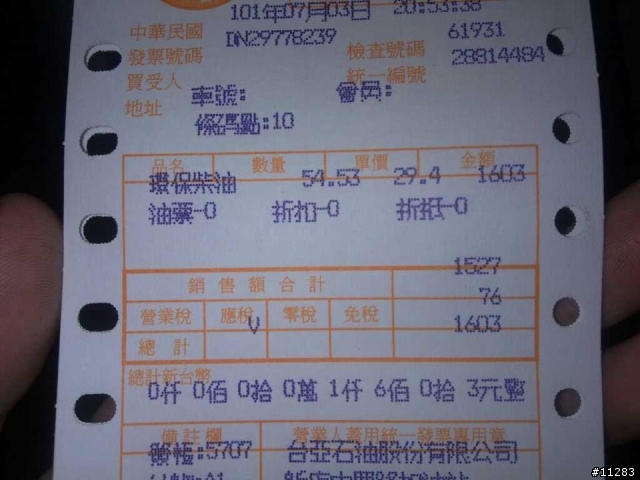 101年07月03日 20:53:38
中華民國
發票號碼 DN29778239 檢查號碼 61931
買受人 統一編號 28814484
地址 車號: 會員:
條碼點:10
品名 數量 單價 金額
環保柴油 54.53 29.4 1603
油票-0 折扣-0 折抵-0
銷售額合計 1527
營業稅 應稅 V 零稅 免稅 76
總計 1603
總計新台幣
0仟 0佰 0拾 0萬 1仟 6佰 0拾 3元整
備註欄 營業人蓋用統一發票專用章
簽帳:5707 台亞石油股份有限公司
#11283